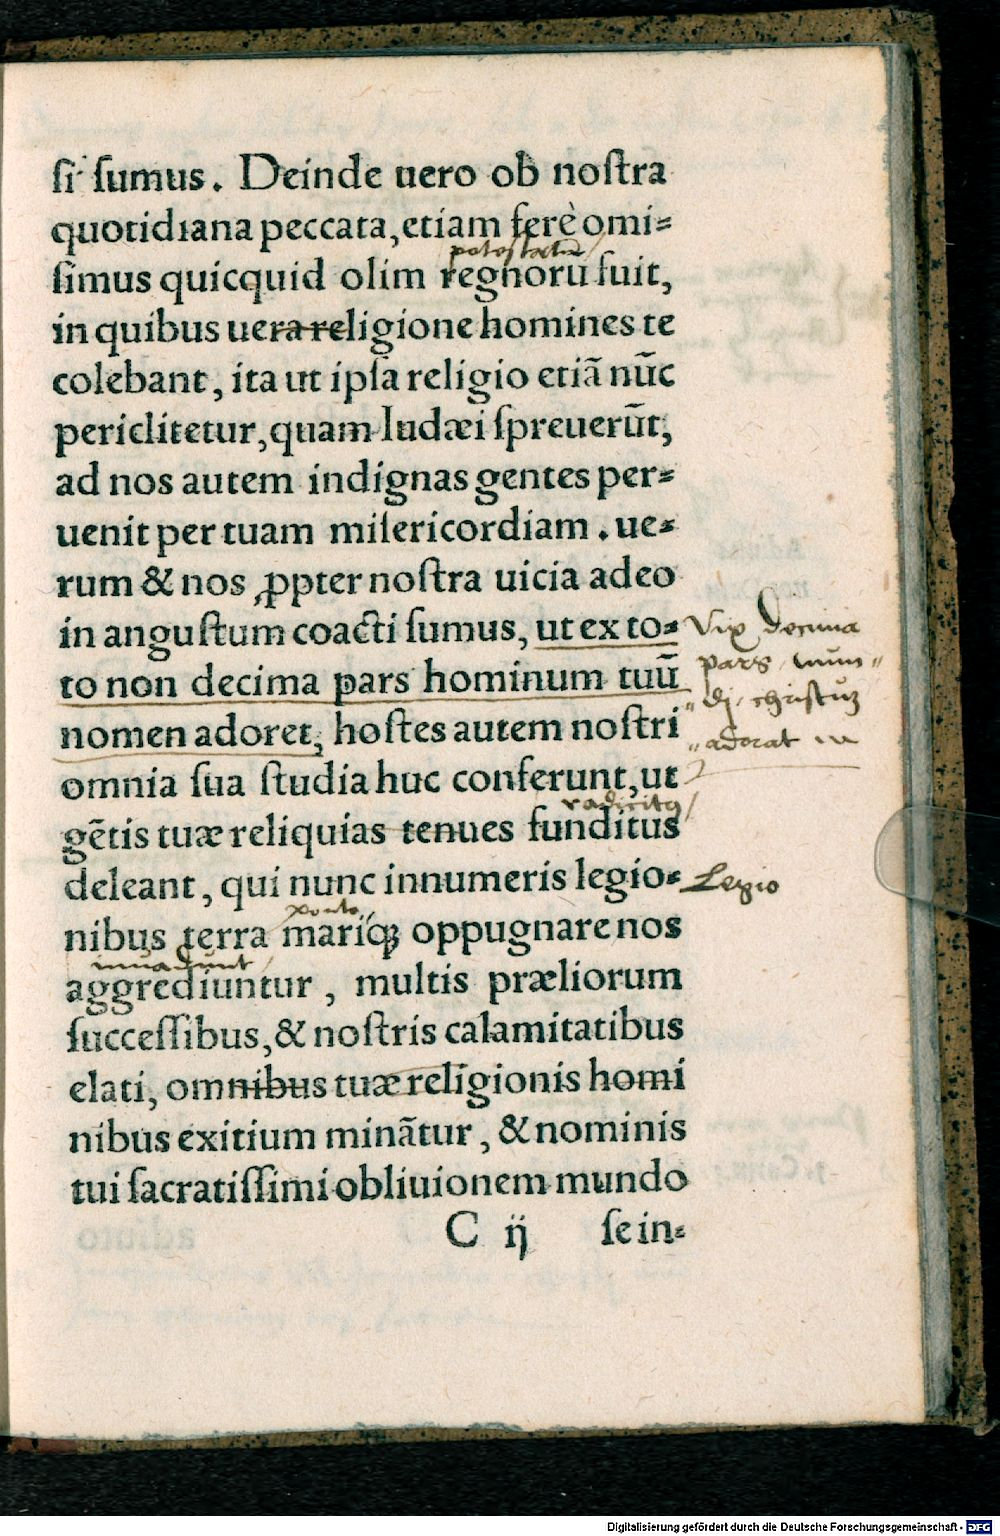 si sumus. Deinde uero ob nostra
quotidiana peccata, etiam ferè omi⸗
potestatū
simus quicquid olim regnorū fuit,
in quibus uera religione homines te
colebant, ita ut ipsa religio etiã nūc
periclitetur, quam Iudæi spreuerūt,
ad nos autem indignas gentes per⸗
uenit per tuam misericordiam. ue⸗
rum & nos ꝓpter nostra uicia adeo
in angustum coacti sumus, ut ex to⸗
to non decima pars hominum tuū
nomen adoret, hostes autem nostri
omnia sua studia huc conferunt, ut
radicitꝰ
gētis tuæ reliquias tenues funditus
deleant, qui nunc innumeris legio⸗
nibus terra mariqꝫ oppugnare nos
inuadunt
aggrediuntur, multis præliorum
successibus, & nostris calamitatibus
elati, omnibus tuæ religionis homi
nibus exitium minãtur, & nominis
tui sacratissimi obliuionem mundo
C ij sein⸗
Vix decima
pars mun⸗
dj christuȝ
adorat
Legio
Digitalisierung gefördert durch die Deutsche Forschungsgemeinschaft - DFG